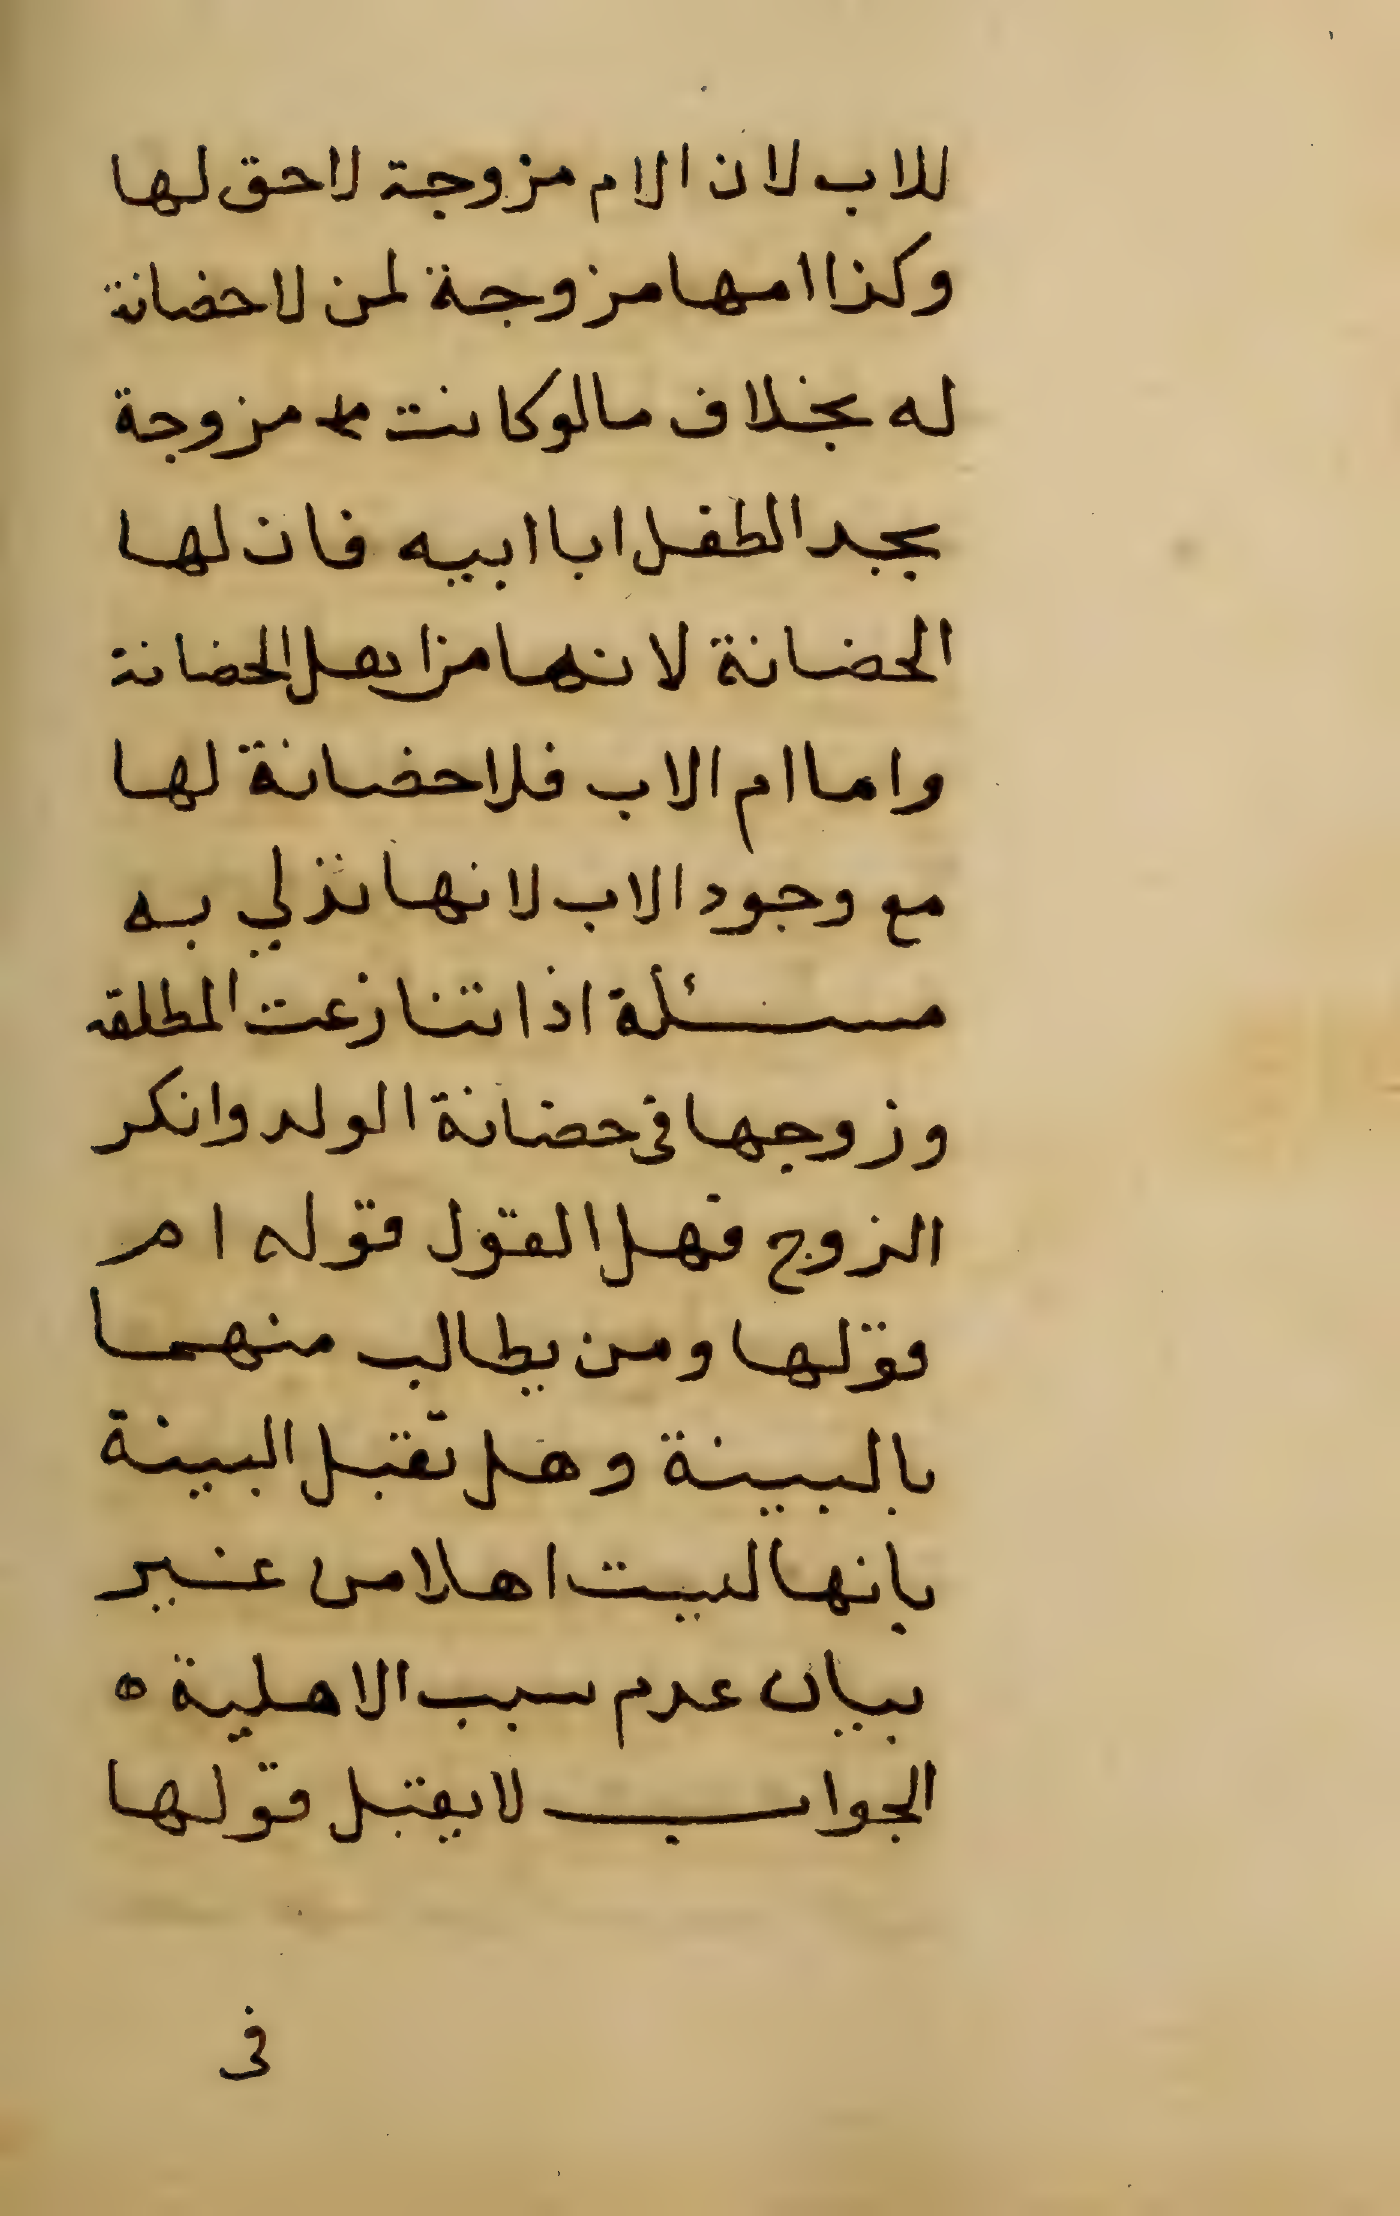 للاب لان الام مزوجة لاحق لها
وكذا امها مزوجة لمن لاحضانة
له بخلاف مالوكانت مزوجة
بجد الطفل ابا ابيه فان لها
الحضانة لانها من اهل الحضانة
واما ام الاب فلاحضانة لها
مع وجود الاب لانها تذلي به
مسئلة اذا تنازعت المطلقة
وزوجها فى حضانة الولد وانكر
الزوج فهل القول قوله ام
قولها ومن يطالب منهما
بالبينة وهل تقبل البينة
بانها ليست اهلا من غير
بيان عدم سبب الاهلية ه
الجواب لايقبل قولها
فى